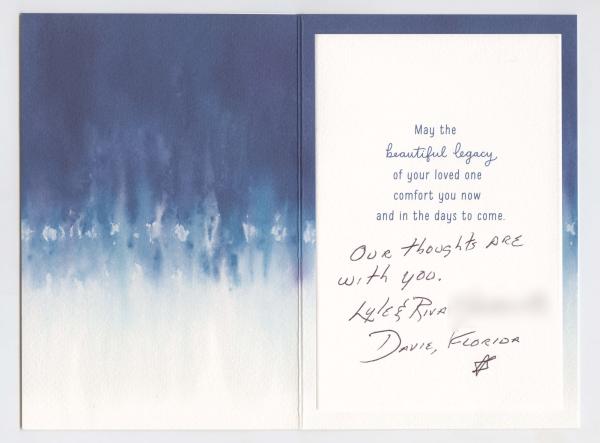 May the
beautiful legacy
of your loved one
comfort you now
and in the days to come.
OUR thoughts ARE
with you.
Lyle & Riva
DAVIE, FLORIDA